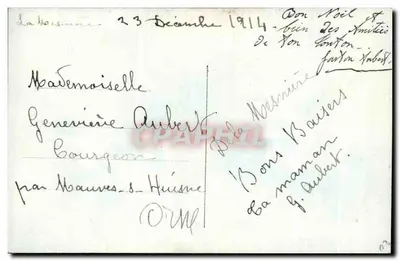 La Mesnière 23 Décembre 1914
Bon Noël et
bien des Amitiés
de ton tonton
Gaston Aubert.
Mademoiselle
Geneviève Aubert
Courgeon
par Mauves-s-Huisne
Orne
De la Mesnière
Bons Baisers
ta maman
G. Aubert.